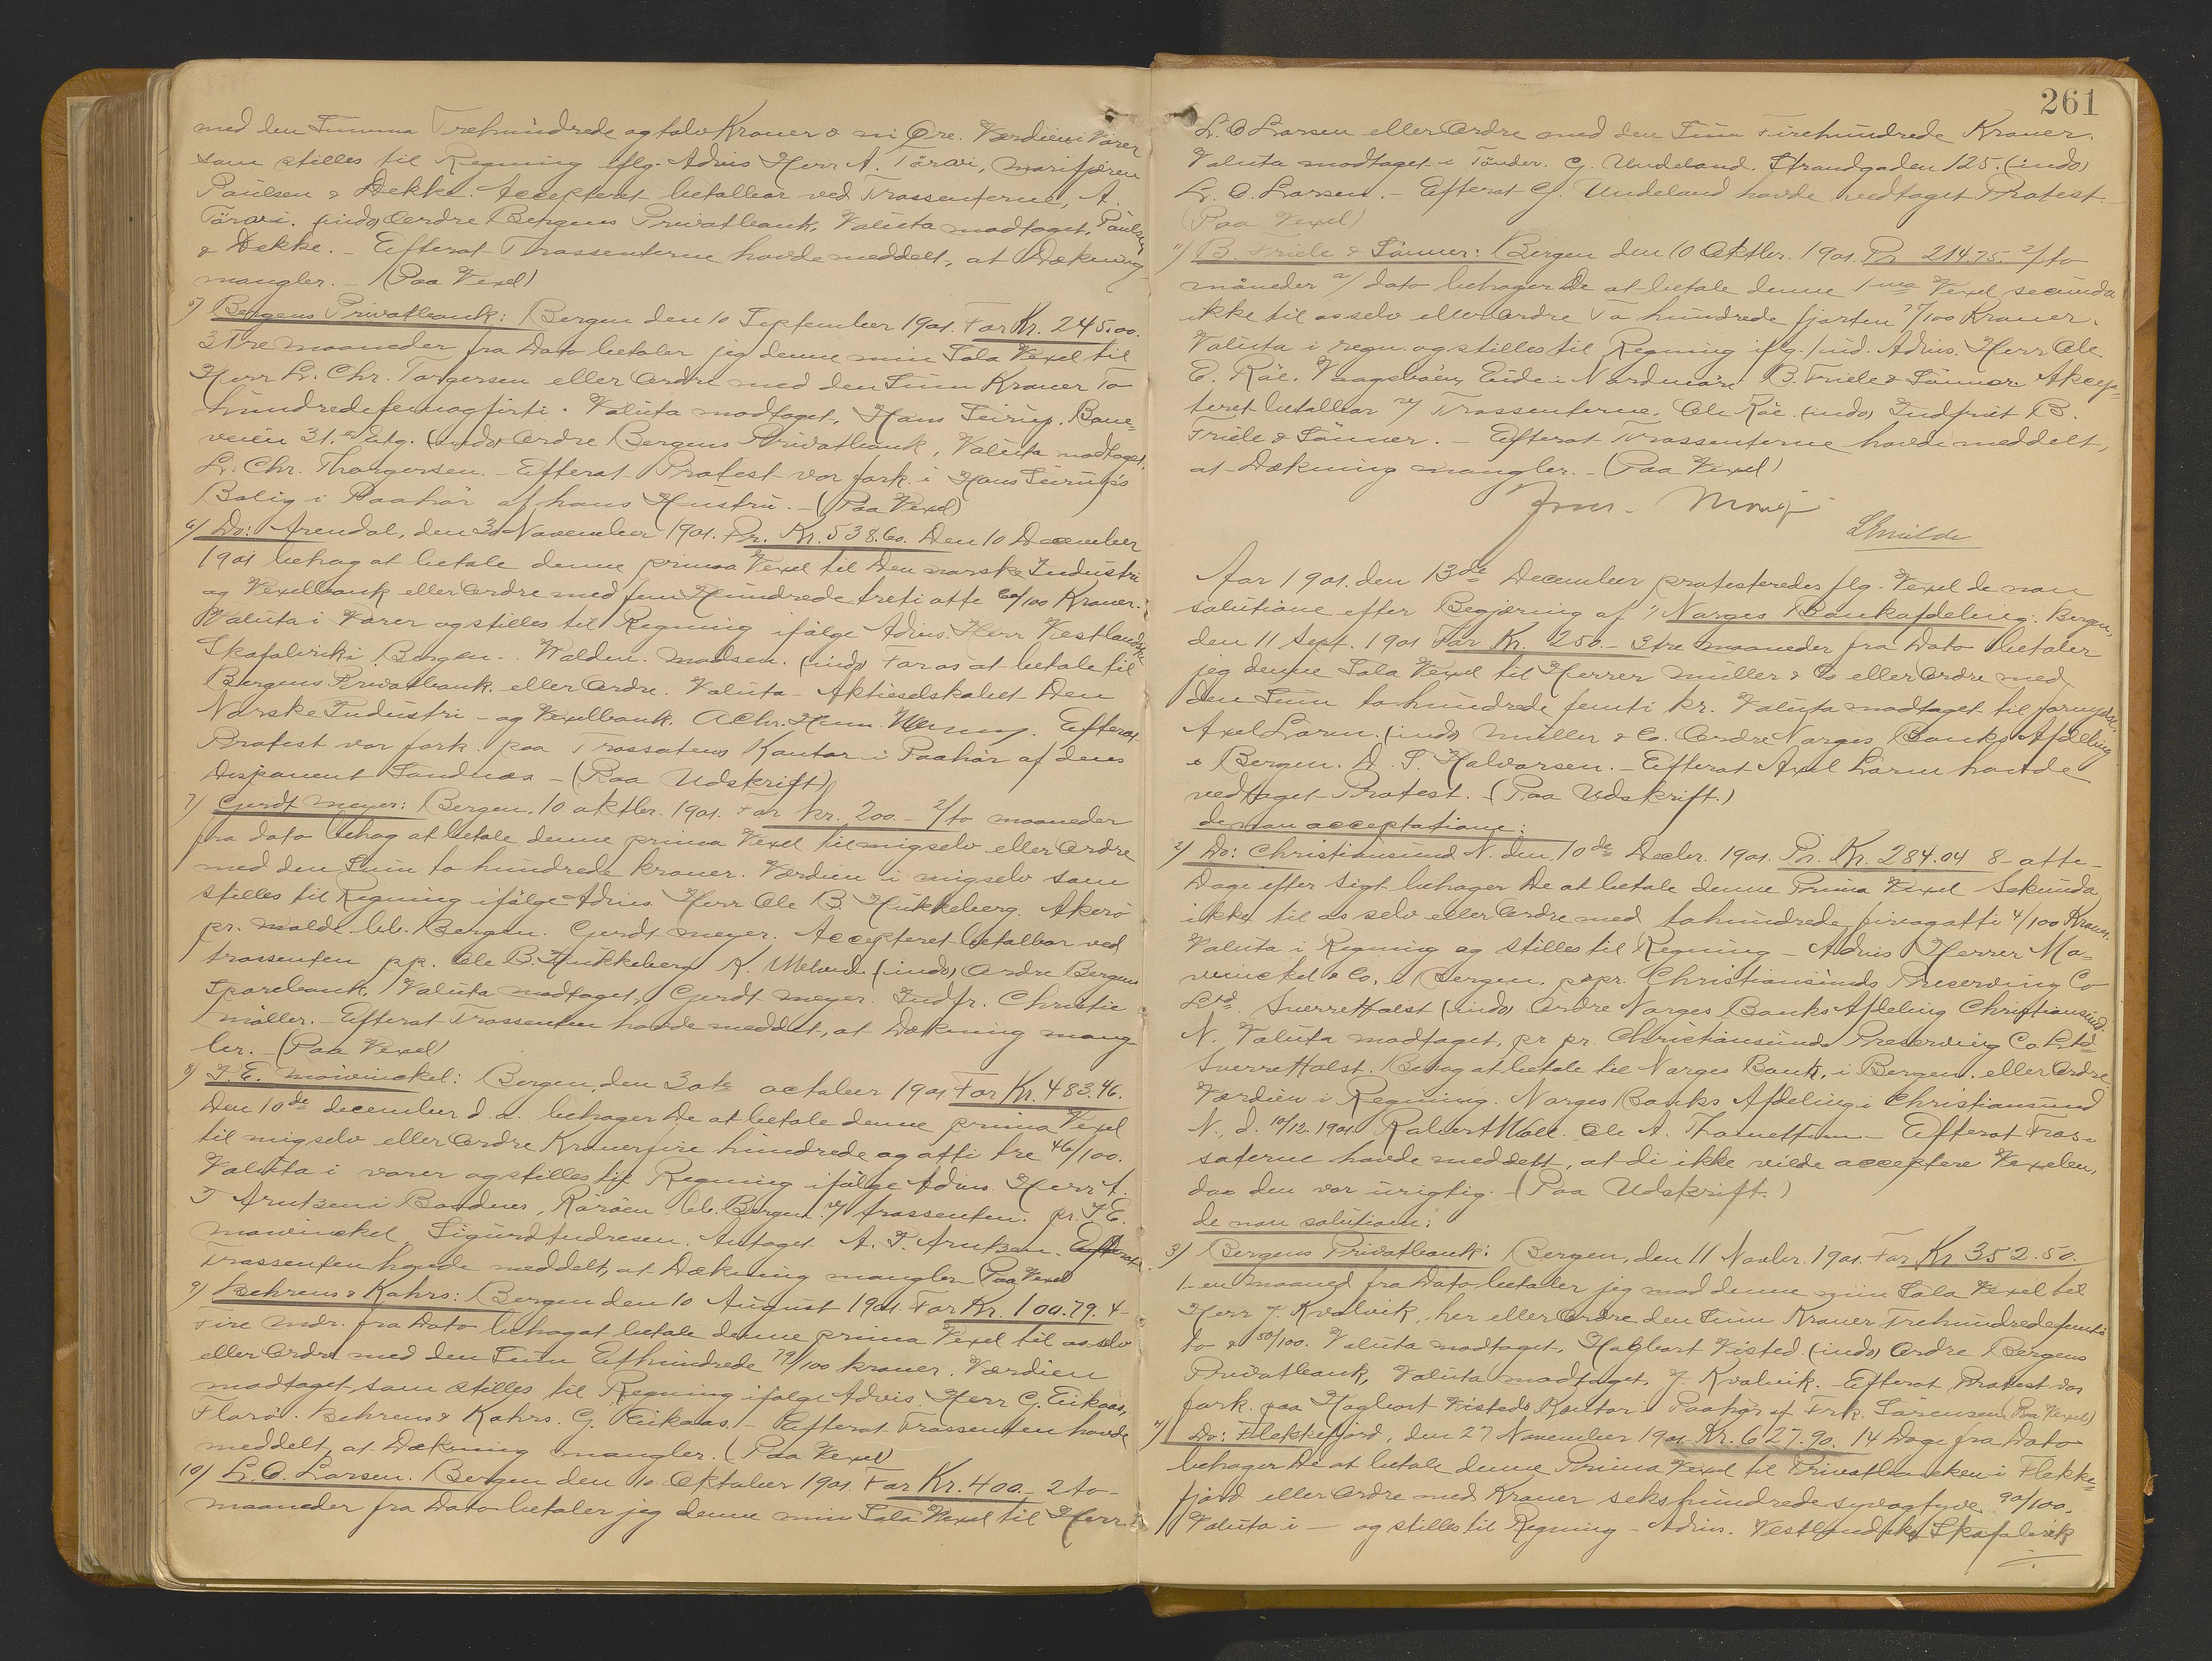 med den Summa Trehundrede og tolv Kroner & ni Øre. Værdien i Varer
som stilles til Regning iflg. Advis Herr A. Törvi, Marifjæren
Paulsen & Dekke. Accepteret betalbar ved Trassenterne, A.
Törvi. (indo) Ordre Bergens Privatbank, Valuta modtaget, Paulsen
& Dekke. - Efterat Trassenterne havde meddelt, at Dækning
mangler. - (Paa Vexel)
5) Bergens Privatbank: Bergen den 10 September 1901. For Kr. 245.00.
3 Tre maaneder fra Dato betaler jeg denne min Sola Vexel til
Herr L. Chr. Torgersen eller Ordre med den Sum Kroner To
hundrede femogfirti. Valuta modtaget, Hans Seirup. Bane=
veien 31. 2 Etg. (indo) Ordre Bergens Privatbank, Valuta modtaget,
L. Chr. Thorgersen. - Efterat Protest var fork. i Hans Seirup's
Bolig i Paahör af hans Hustru. - (Paa Vexel)
6) Do: Arendal, den 3d November 1901. Pr. Kr. 538.60. Den 10 December
1901 behag at betale denne prima Vexel til Den norske Industri
og Vexelbank eller Ordre med fem Hundrede treti otte 60/100 Kroner.
Valuta i Varer og stilles til Regning ifölge Advis. Herr Vestlandske
Skofabrik i Bergen. Walden. Madsen. (indo) For os at betale til
Bergens Privatbank eller Ordre. Valuta - Aktieselskabet Den
Norske Industri - og Vexelbank. A Chr. Herm. Efterat
Protest var fork. paa Trassatens Kontor i Paahör af dens
Disponent Sandnæs - (Paa Udskrift)
7) Gerdt Meyer: Bergen. 10 oktbr. 1901. For Kr. 200 - 2/to maaneder
fra dato behag at betale denne prima Vexel til mig selv eller Ordre
med den Sum to hundrede kroner. Værdien i mig selv som
stilles til Regning ifölge Advis. Herr Ole B. Hukkelberg. Akerö
pr. Molde bb. Bergen. Gerdt Meyer. Accepteret betalbar ved
trassenten pp. Ole B. Hukkelberg K. Meland. (indo) Ordre Bergens
Sparebank. Valuta modtaget, Gerdt Meyer. Indfr. Christie
Möller. - Efterat Trassenten havde meddelt, at Dækning mang-
ler. - (Paa Vexel)
8) J. E. Mowinckel: Bergen, den 3ote october 1901 For Kr. 483.46.
Den 10de december d. a. behager De at betale denne prima Vexel
til mig selv eller Ordre Kroner fire hundrede og otti tre 46/100.
Valuta i varer og stilles til Regning ifölge Advis. Herr A.
T Arntzen i Bodnes, Röröen bb. Bergen v/ trassenten. pr. J. E.
Mowinckel. Sigurd Andresen. Antaget A. T. Arntzen. Efterat
Trassenten havde meddelt, at Dækning mangler (Paa Vexel)
9) Behrens & Kahrs: Bergen den 10 August 1901. For Kr. 100.79. 4 -
Fire Mdr. fra Dato behag at betale denne prima Vexel til os selv
eller Ordre med den Sum Ethundrede 79/100 kroner. Værdien
modtaget, som stilles til Regning ifölge Advis. Herr G. Eikaas,
Florö. Behrens & Kahrs. G. Eikaas. - Efterat Trassenten havde
meddelt, at Dækning mangler. (Paa Vexel)
10) L. O. Larsen. Bergen den 10 Oktober 1901. For Kr. 400 - 2 to -
maaneder fra Dato betaler jeg denne min Sola Vexel til Herr
261
L. O Larsen eller Ordre med den Sum Firehundrede Kroner.
Valuta modtaget i Tönder. G. Undeland. Strandgaden 125. (indo)
L. O. Larsen. - Efterat G. Undeland havde vedtaget Protest. -
(Paa Vexel)
11) B. Friele & Sönner: Bergen den 10 Oktbr. 1901. Pr 214.75. 2/to
måneder a/ dato behager De at betale denne 1ma Vexel secunda
ikke til os selv eller Ordre To hundrede fjorten 75/100 Kroner.
Valuta i regn. og stilles til Regning iflg. ind. Advis. Herr Ole
E. Röe. Vaagsböen, Eide i Nordmöre B. Friele & Sönner. Akcep=
teret betalbar v/ Trassenterne. Ole Röe. (indo) Indfriet B.
Friele & Sönner. - Efterat Trassenterne havde meddelt,
at Dækning mangler. - (Paa Vexel)
Smilde
Aar 1901. den 13de December protesteredes flg. Vexel de non
solutione efter Begjæring af 1) Norges Bankafdeling: Bergen,
den 11 Sept. 1901 For Kr. 250. - 3 tre maaneder fra Dato betaler
jeg denne Sola Vexel til Herrer Müller & Co eller Ordre med
den Sum to hundrede femti kr. Valuta modtaget til fornyelse,
Axel Lorm. (indo) Müller & Co. Ordre Norges Banks Afdeling
i Bergen. D. S. Halvorsen. - Efterat Axel Lorm havde
vedtaget Protest. (Paa Udskrift.)
de non acceptatione:
2) Do: Christiansund N. den 10de Decbr. 1901. Pr. Kr. 284.04 8 - otte -
Dage efter Sigt behager De at betale denne Prima Vexel Sekunda
ikke til os selv eller Ordre med tohundrede fireogotti 4/100 Kroner.
Valuta i Regning og stilles til Regning - Advis Herrer Mo=
winckel & Co. i Bergen. p pr. Christiansunds Preserving Co
Ltd. Sverre Holst (indo) Ordre Norges Banks Afdeling Christiansund.
N. Valuta modtaget, pr pr. Christiansunds Preserving Co Ltd
Sverre Holst. Behag at betale til Norges Bank, i Bergen. eller Ordre.
Værdien i Regning. Norges Banks Afdeling i Christiansund
N., d. 10/12. 1901 Robert Wall. Ole A. - Efterat Tras=
saterne havde meddelt, at di ikke vilde acceptere Vexelen,
daa den var urigtig. - (Paa Udskrift.)
de non solutione:
3) Bergens Privatbank: Bergen, den 11 Novbr. 1901. For Kr. 352.50.
1- en Maaned fra Dato betaler jeg mod denne min Sola Vexel til
Herr J. Kvalvik, her eller Ordre den Sum Kroner Trehundredefemti
to & 50/100. Valuta modtaget, Hagbart Visted. (indo) Ordre Bergens
Privatbank, Valuta modtaget, J. Kvalvik. - Efterat Protest var
fork. paa Hagbart Visteds Kontor i Paahör af Frk. Sörensen. (Paa Vexel)
4) Do: Flekkefjord, den 27 November 1901. Kr. 627.90. 14 Dage fra Dato
behager De at betale denne Prima Vexel til Privatbanken i Flekke=
fjord eller Ordre med Kroner sekshundredesyvogtyve 90/100.
Valuta i - og stilles til Regning - Advis. Vestlandske Skofabrik